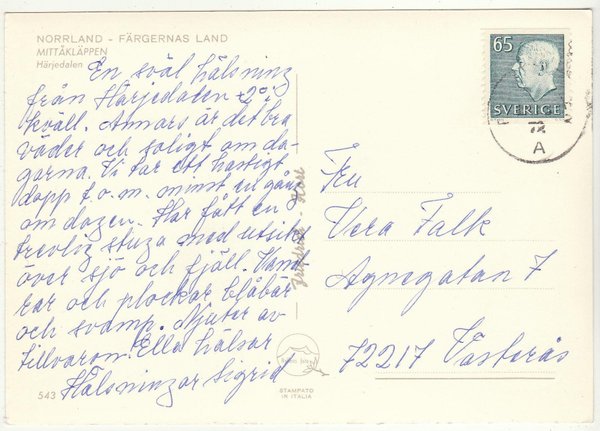 NORRLAND - FÄRGERNAS LAND
MITTÅKLÄPPEN
Härjedalen
En sval hälsning
från Härjedalen +2° i
kväll. Annars är det bra
väder och soligt om da-
garna. Vi tar ett hastigt
dopp t.o.m. minst en gång
om dagen. Har fått en
trevlig stuga med utsikt
över sjö och fjäll. Vand
rar och plockar blåbär
och svamp. Njuter av
tillvaron. Ella hälsar
Hälsningar Sigrid
543
STAMPATO
IN ITALIA
65
SVERIGE
A
Fru
Vera Falk
Agnegatan 7
72217 Västerås